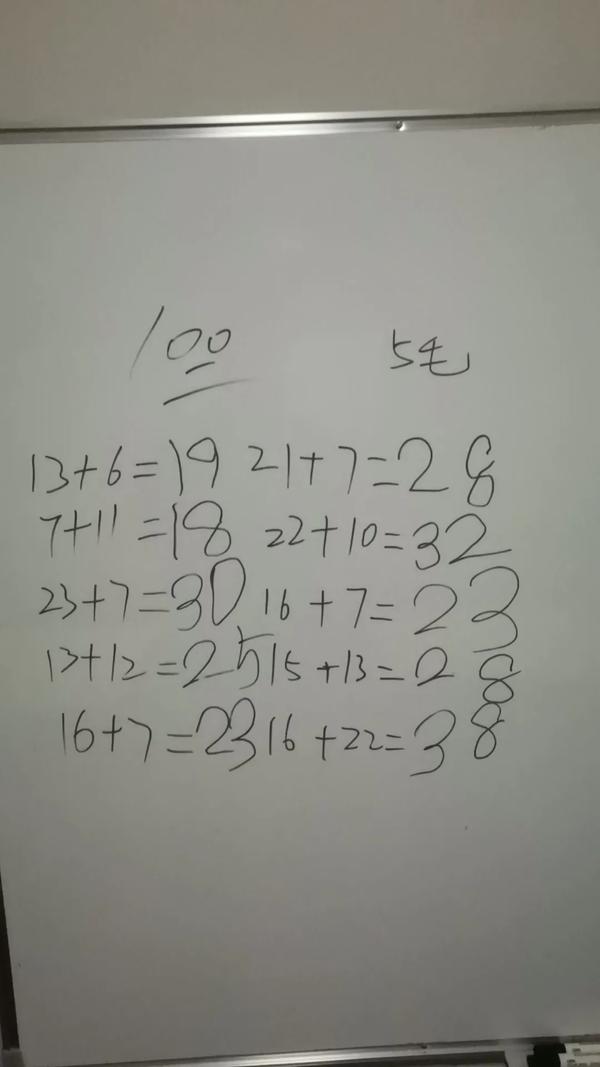 100 5毛
13+6=19 21+7=28
7+11=18 22+10=32
23+7=30 16+7=23
13+12=25 15+13=28
16+7=23 16+22=38